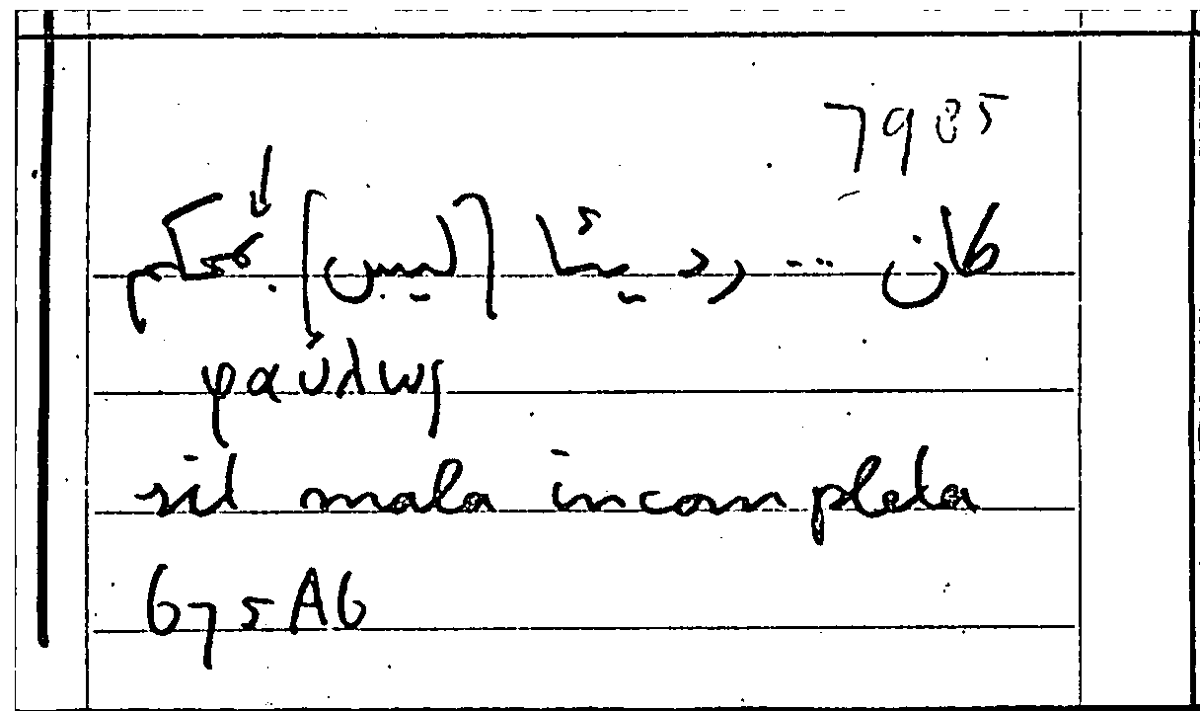 7985
كان ... رديئا [ليس] بمحكم
φαύλως
sit mala incompleta
675A6